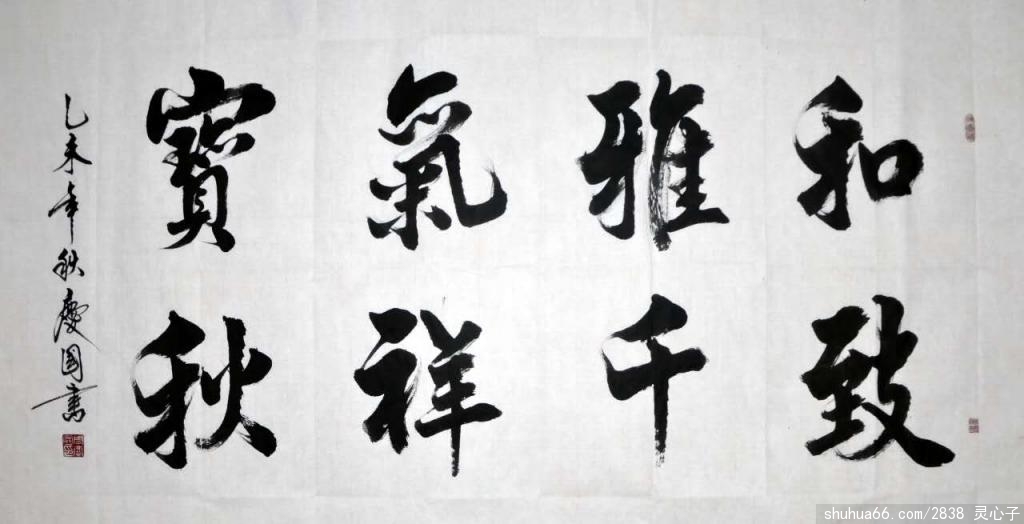 和致
雅千
氣祥
寶秋
乙未年秋慶国書
shuhua66.com/2838 灵心子